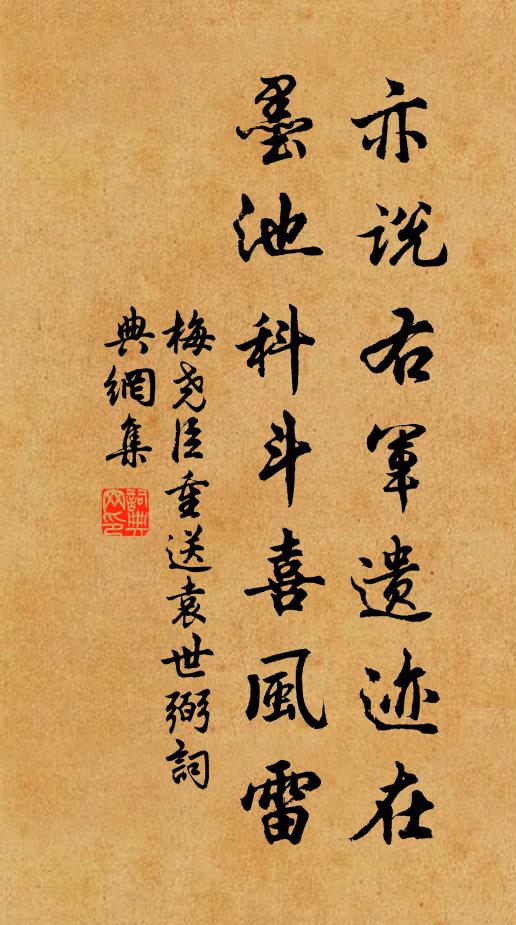 亦说右軍遗迹在
墨池科斗喜風雷
梅尧臣重送袁世弼詞
典網集
詞典
网印